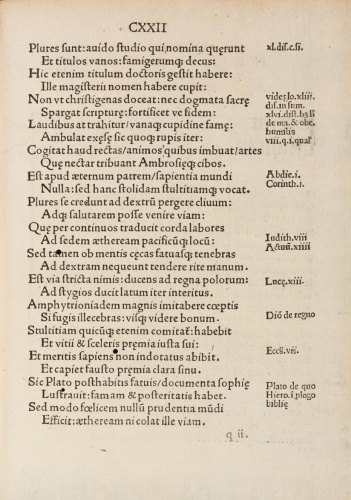 CXXII
Plures sunt: auido studio qui nomina querunt
Et titulos vanos: famigerumqȝ decus:
Hic etenim titulum doctoris gestit habere:
Ille magisterii nomen habere cupit:
Non vt christigenas doceat: nec dogmata sacrę
Spargat scripturę: fortificet ve fidem:
Laudibus at trahitur/vanaqȝ cupidine famę:
Ambulat exęse sic quoqȝ rupis iter:
Cogitat haud rectas/animos quibus imbuat/artes
Quę nectar tribuant Ambrosięqȝ cibos.
Est apud ęternum patrem/sapientia mundi
Nulla: sed hanc stolidam stultitiamqȝ vocat.
Plures se credunt ad dextrū pergere cliuum:
Adqȝ salutarem posse venire viam:
Quę per continuos traducit corda labores
Ad sedem ætheream pacificūqȝ locū:
Sed tamen ob mentis cęcas fatuasqȝ tenebras
Ad dextram nequeunt tendere rite manum.
Est via stricta nimis: ducens ad regna polorum:
Ad stygios ducit latum iter interitus.
Amphytrioniadem magnis imitabere cœptis
Si fugis illecebras: visqȝ videre bonum.
Stultitiam quicūqȝ etenim comitat̃: habebit
Et vitii & sceleris pręmia iusta sui:
Et meritis sapiens non indotatus abibit.
Et capiet fausto pręmia clara sinu.
Sic Plato posthabitis fatuis/documenta sophię
Lustrauit: famam & posteritatis habet.
Sed modo fœlicem nullū prudentia mūdi
Efficit: ætheream ni colat ille viam.
q ii.
xl.dis.c.si.
vide glo.xliii.
dis.in sum.
xlvi.dist.
de ma. & obe.
humilis
viii.q.i.
Abdie.i.
Corinth.i.
Iudith.viii
Actuū.xiiii
Lucę.xiii.
Diō de regno
Eccs̄.vii.
Plato de quo
Hiero.i ꝓlogo
biblię